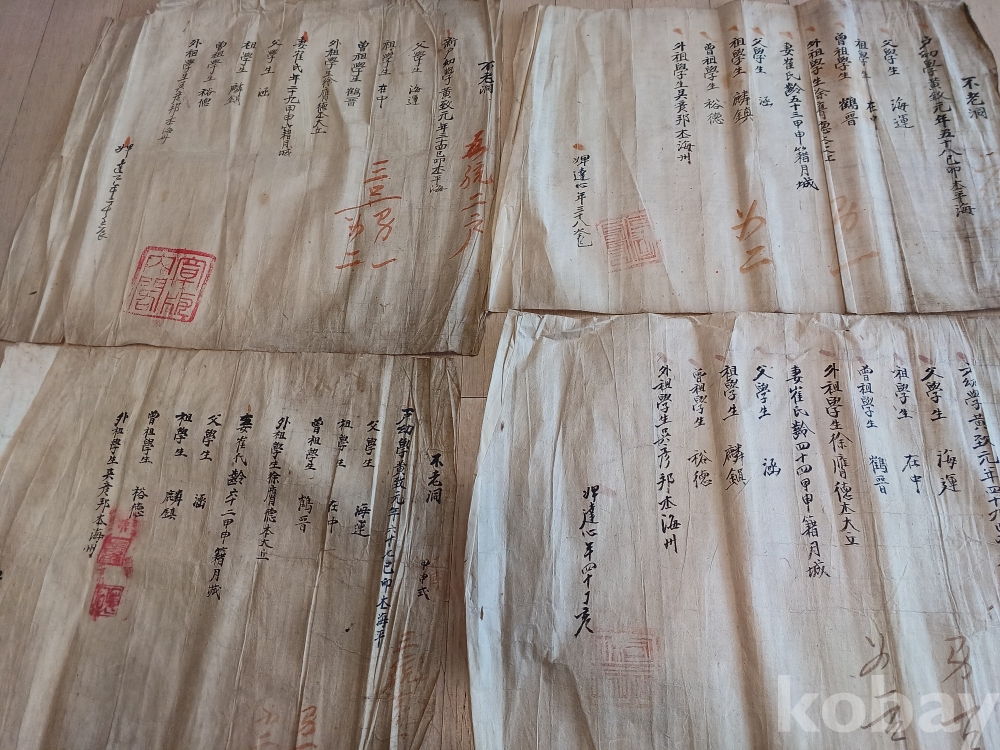 不老洞
新戶幼學黃致元年三 己卯本平海
父學生 海運
祖學生 在中
曾祖學生 鶴晋
外祖學生徐膺德本大丘
妻崔氏年二十九甲申籍月城
父學生 涵
祖學生 麟鎮
曾祖學生 裕德
外祖學生吳彦邦本海州
五統二戶
三口男一
女二
不老洞
戶幼學黃致元年五十八己卯本平海
父學生 海運
祖學生 在中
曾祖學生 鶴晋
外祖學生徐膺德本大丘
妻崔氏齡五十三甲申籍月城
父學生 涵
祖學生 麟鎮
曾祖學生 裕德
外祖學生吳彦邦本海州
婢達心年三十八
男一
女二
不老洞
甲申式
戶幼學黃致元年六十 己卯本海平
父學生 海運
祖學生 在中
曾祖學生 鶴晋
外祖學生徐膺德本大丘
妻崔氏齡六十二甲申籍月城
父學生 涵
祖學生 麟鎮
曾祖學生 裕德
外祖學生吳彦邦本海州
戶幼學黃致元年四十九
父學生 海運
祖學生 在中
曾祖學生 鶴晋
外祖學生徐膺德本大丘
妻崔氏齡四十四甲申籍月城
父學生 涵
祖學生 麟鎮
曾祖學生 裕德
外祖學生吳彦邦本海州
婢達心年四十丁亥
kobay